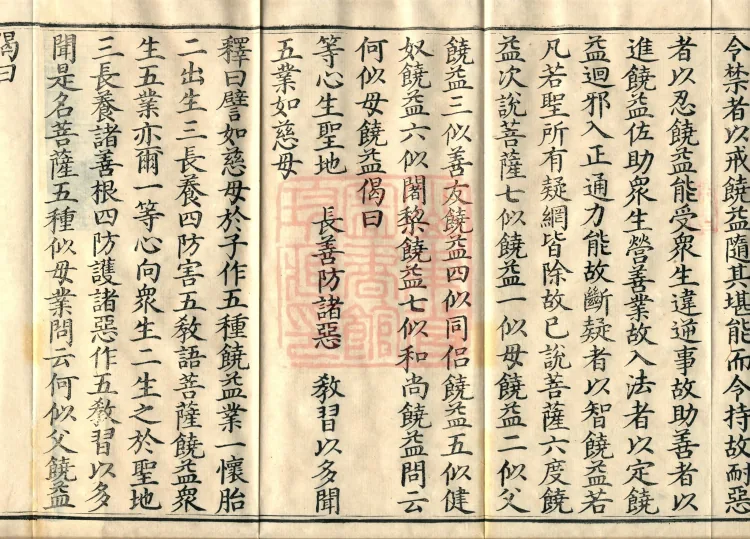 令禁者以戒饒益隨其堪能而令持故耐惡
者以忍饒益能受衆生違逆事故助善者以
進饒益佐助衆生營善業故入法者以定饒
益迴邪入正通力能故斷疑者以智饒益若
凡若聖所有疑網皆除故已說菩薩六度饒
益次說菩薩七似饒益一似母饒益二似父
饒益三似善友饒益四似同侶饒益五似健
奴饒益六似闍黎饒益七似和尚饒益問云
何似母饒益偈曰
等心生聖地 長善防諸惡 教習以多聞
五業如慈母
釋曰譬如慈母於子作五種饒益業一懷胎
二出生三長養四防害五教語菩薩饒益衆
生五業亦爾一等心向衆生二生之於聖地
三長養諸善根四防護諸惡作五教習以多
聞是名菩薩五種似母業問云何似父饒益
偈曰